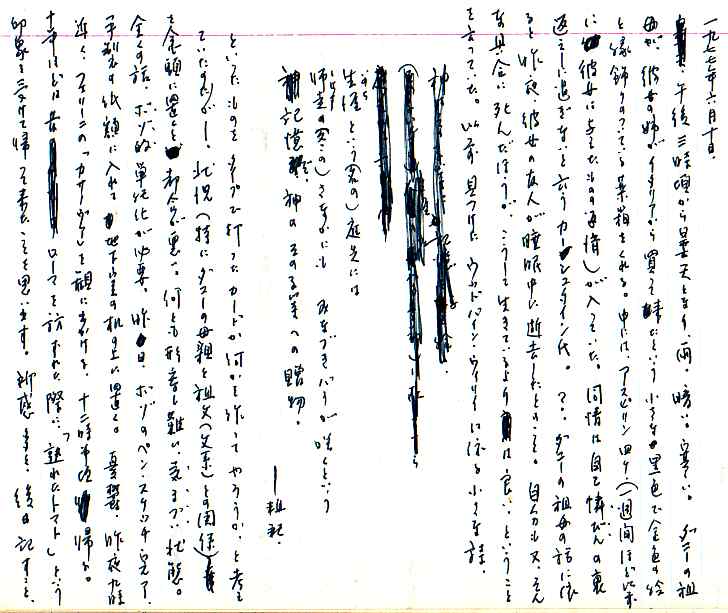 一九七七年六月十日。
午後三時頃から曇天となり、雨、暗い。寒い。ダニーの祖
母が、彼女の姉がイタリアから買って来たという小さな黒色で金色の絵
と縁飾りのついている薬箱をくれる。中には、アスピリン四ケ(一週間ほど
に彼女に与えたものの)が入っていた。同情は自己憐びんの裏
返しに過ぎないと言う ダニーの祖母の話に依
ると昨夜、彼女の友人が睡眠中に逝去したとのこと。自分も又、そん
な具合に死んだほうが、こうして生きているより は良い、ということ
を言っていた。以前見つけた に依る小さな詩。
生活という名の(庭先には
師走の客の)さなかにも みなづきバラが咲くという
記憶 神の そのある輩への贈物。
といったものをタイプで打ったカードか何かを作ってやろうか、と考え
ていたのだが—。状況(特にダニーの母親と祖父(父系)との関係)
を念頭に置くと 都合が悪い。何とも形容し難い、気まづい状態。
全くの話、ボゾ的単純化が必要。昨日、ボゾのペン・スケッチ完了。
の紙類に入れて 地下室の机の上に置く。 昨夜九時
近く、フェリーニの「カサノヴァ」を観に出かけ、十二時半頃 帰る。
ローマを訪ずれた際に、「熟れたトマト」という
印象を受けて帰って来たことを思い出す。 感ずると、後日記すこと。